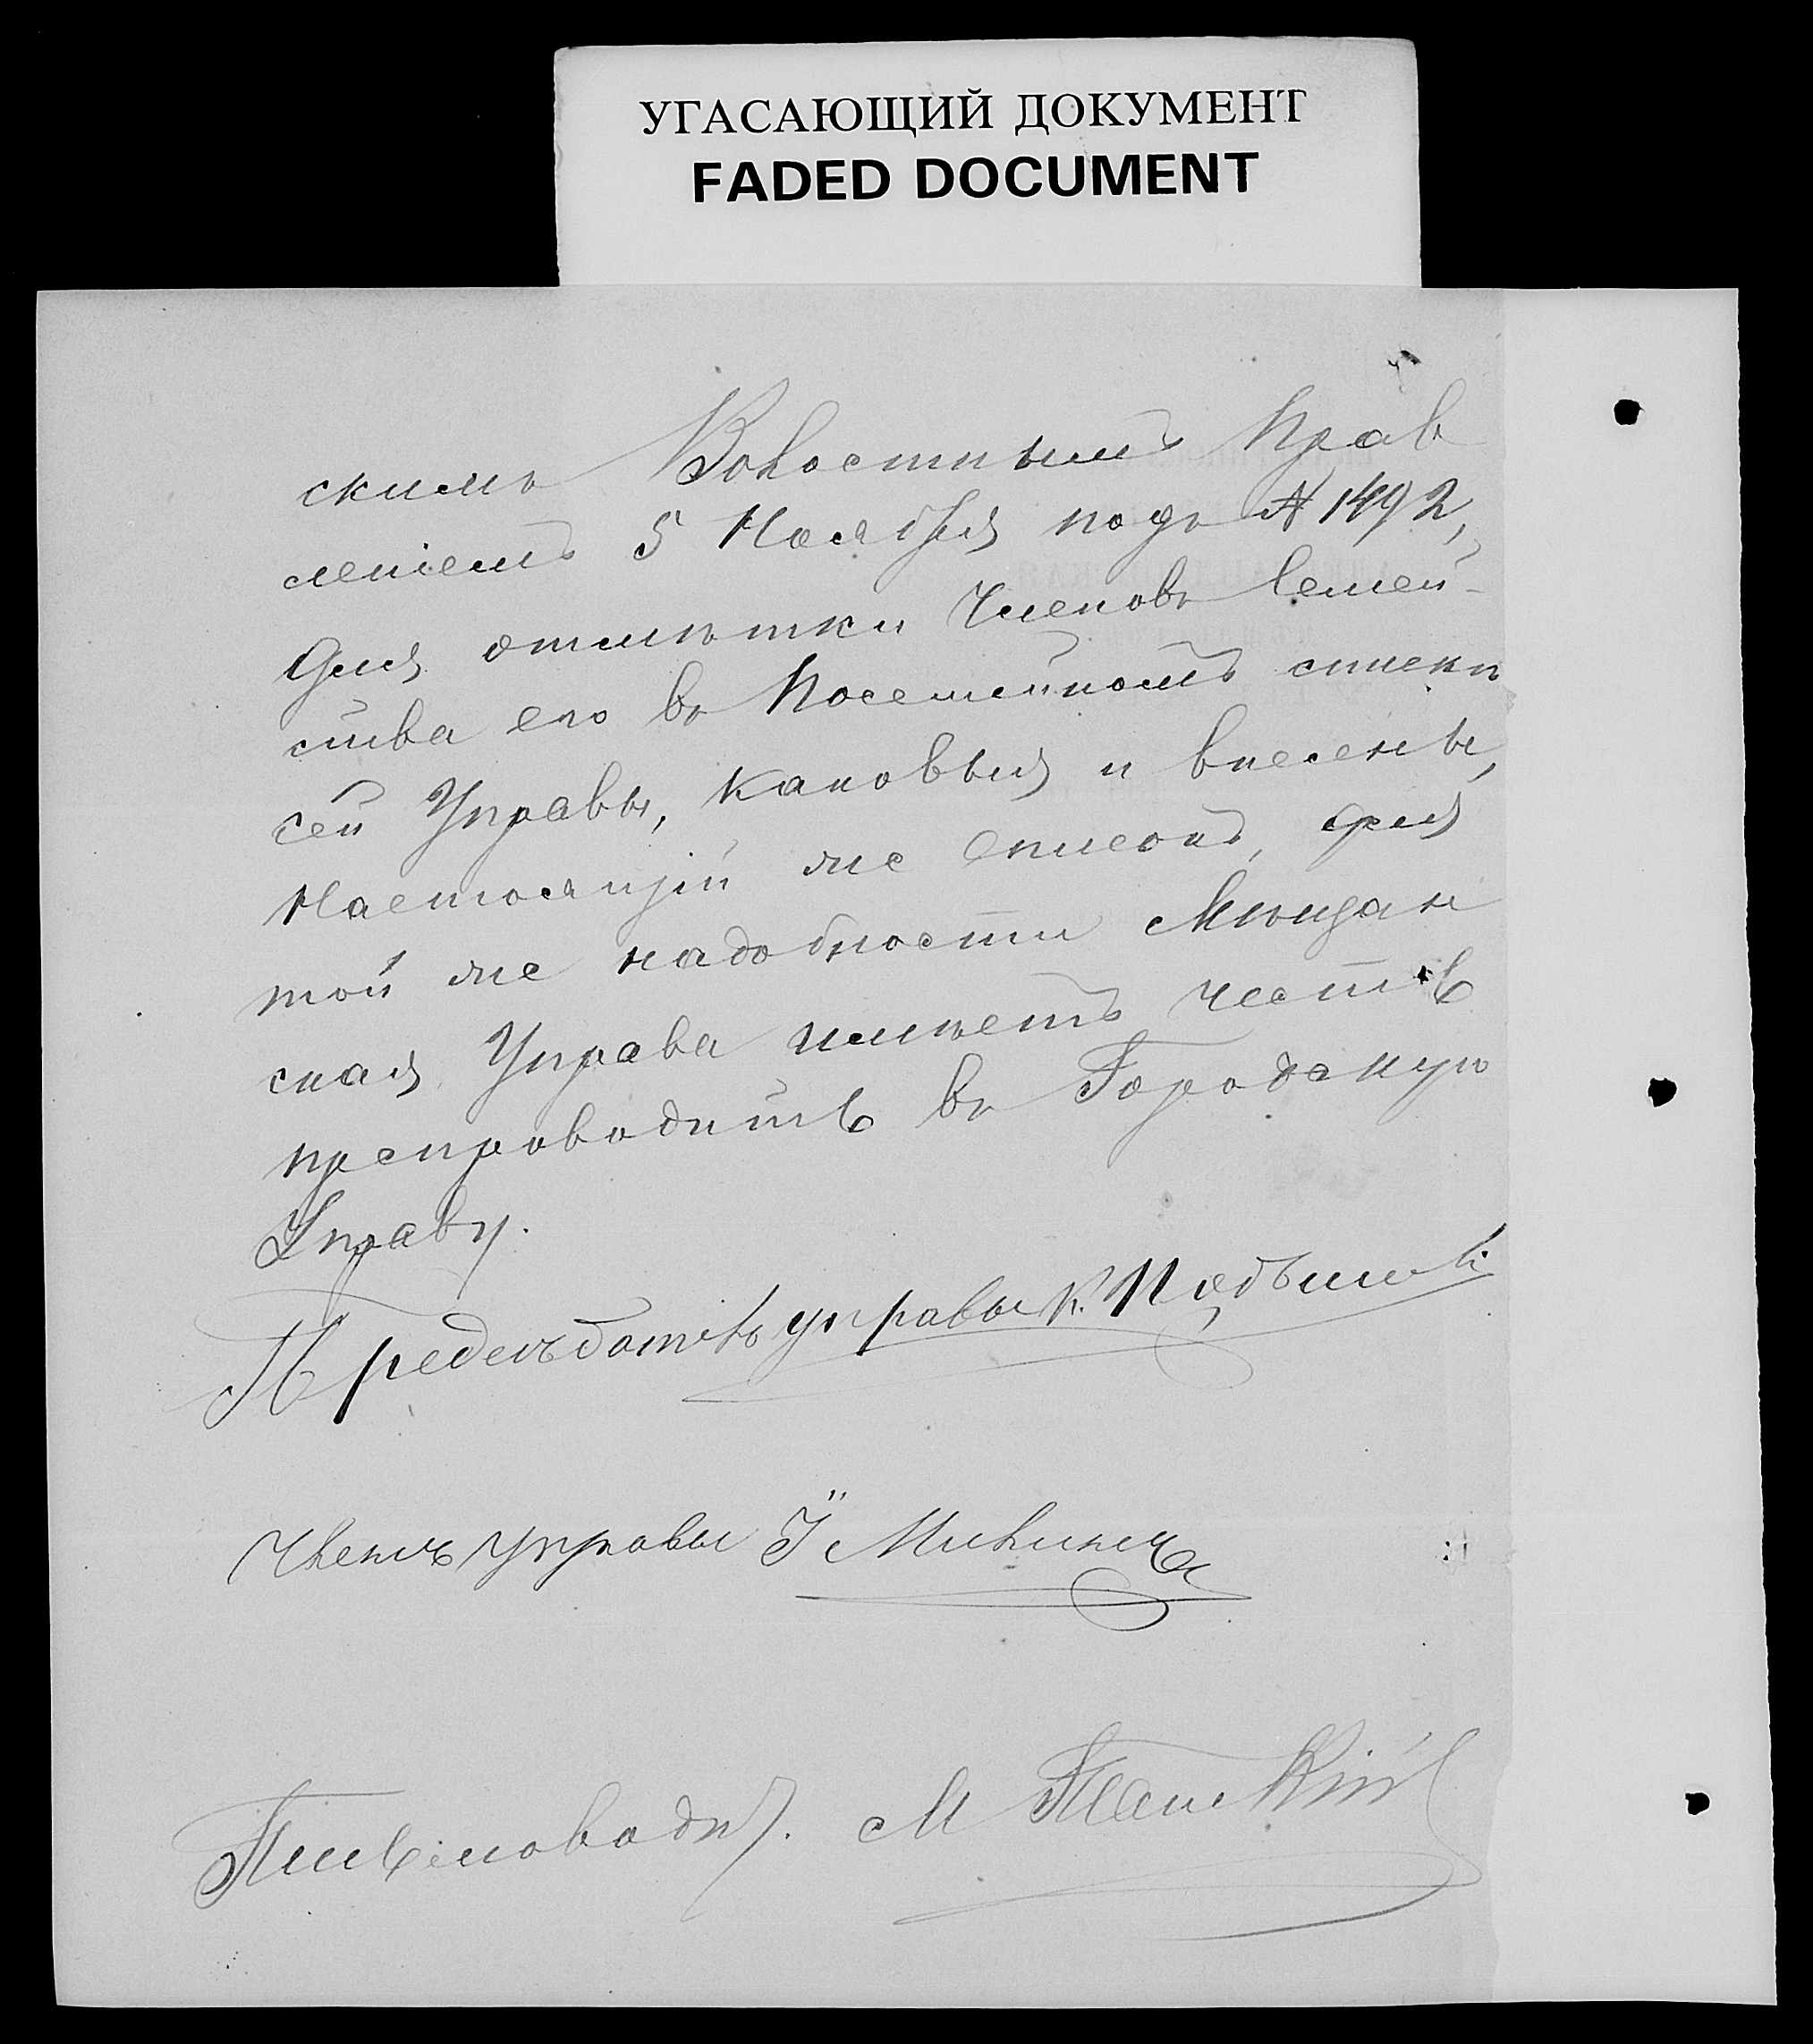 УГАСАЮЩИЙ ДОКУМЕНТ
FADED DOCUMENT
скимъ Волостнымъ Прав
леніемъ 5 Ноября подъ № 1492,
для отмѣтки Членовъ Семей-
ства его въ Посемейномъ списки
сей Управы, каковыя и внесены,
Настоящій же Списокъ, для
той же надобности Мѣщан
ская Управа имѣетъ честь
препроводить въ Городскую
Управу.
Председатель управы К.
Членъ управы І
Письмовод. М